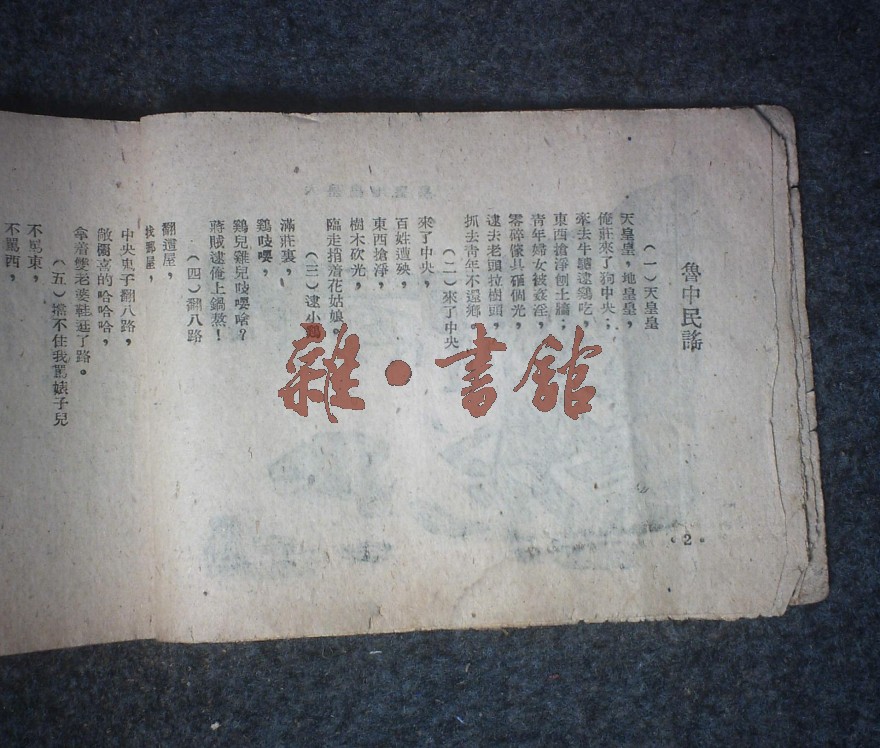 魯中民謠
（一）天皇皇
天皇皇，地皇皇，
俺莊來了狗中央；
牽去牛驢逮鷄吃，
東西搶淨刨土牆；
青年婦女被姦淫，
零碎傢具砸個光，
逮去老頭拉樹頭，
抓去青年不還鄉
（二）來了中央
來了中央，
百姓遭殃，
東西搶淨，
樹木砍光，
臨走捎着花姑娘。
（三）逮小鷄
滿莊裏，
鷄吱嘤，
鷄兒鷄兒吱嘤啥？
蔣賊逮俺上鍋熬！
（四）翻八路
翻這屋，
找那屋，
中央鬼子翻八路，
敵彌喜的哈哈哈，
拿着雙老婆鞋逛了路。
（五）擋不住我罵婊子兒
不罵東，
不罵西，
·2·
雜·書館